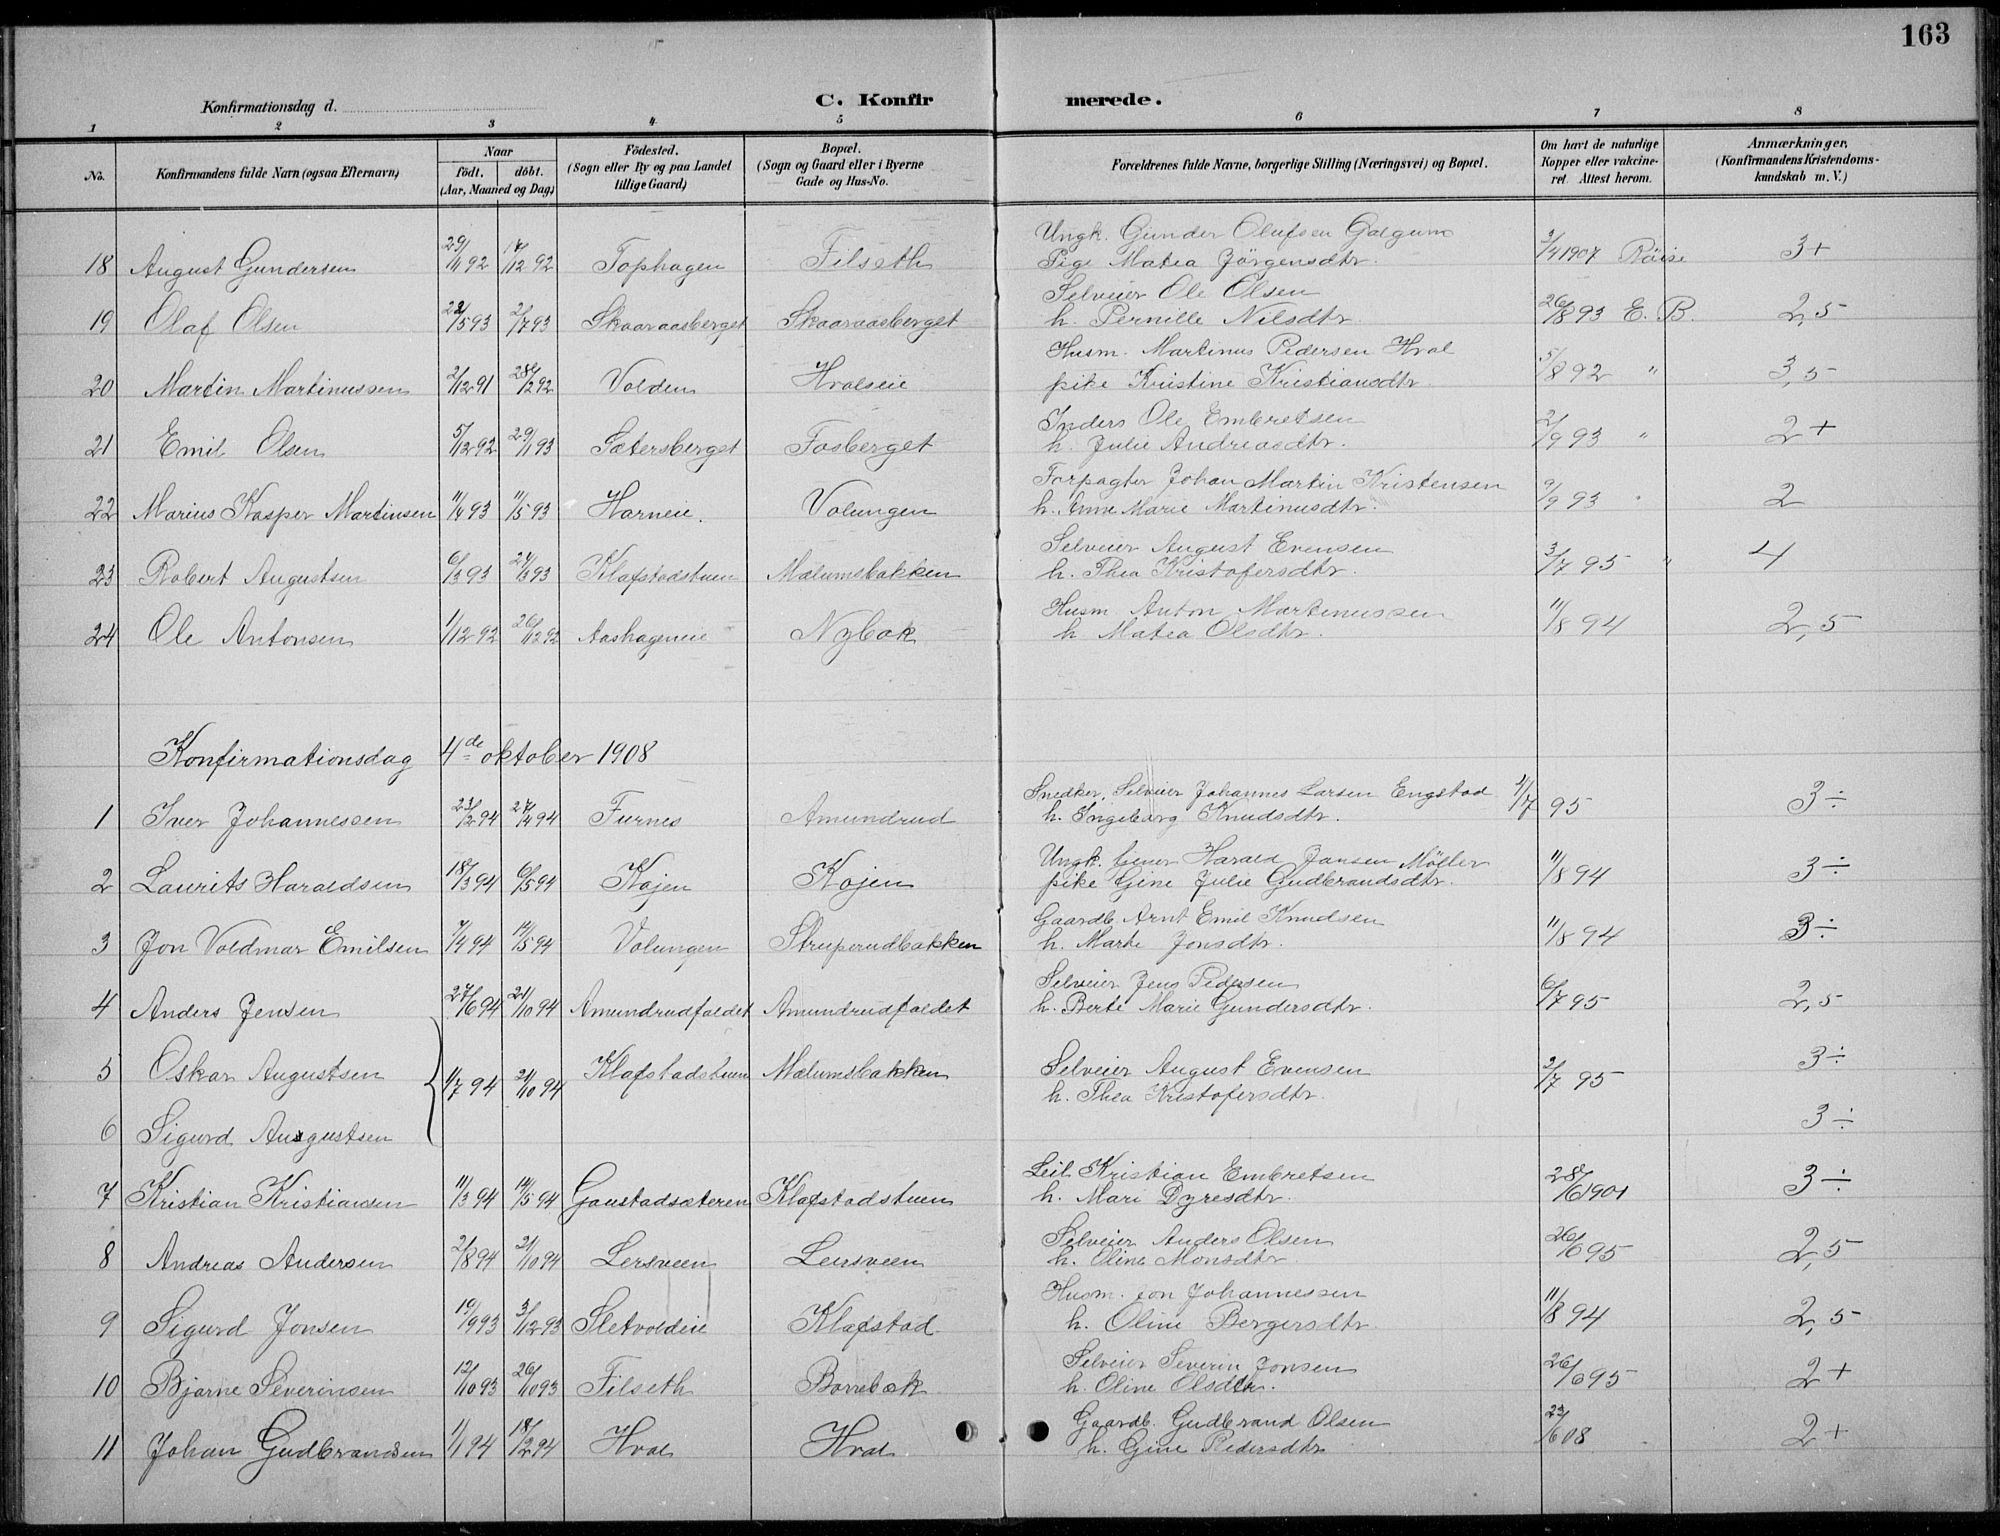 163
Konfirmationsdag d.
C. Konfirmerede.
1 2 3 4 5 6 7 8
No. Konfirmandens fulde Navn (ogsaa Efternavn)
Naar födt. döbt. (Aar, Maaned og Dag)
Födested. (Sogn eller By og paa Landet tillige Gaard)
Bopæl. (Sogn og Gaard eller i Byerne Gade og Hus-No.
Forældrenes fulde Navne, borgerlige Stilling (Næringsvei) og Bopæl.
Om havt de naturlige Kopper eller vakcineret. Attest herom.
Anmærkninger, (Konfirmandens Kristendomskundskab m. V.)
Ungk. Gunder Olufsen Galgum
18 August Gundersen 29/11 92 17/12 92 Tophagen Filseth Pige Matea Jörgensdtr. 3/4 1907 Röise 3+
Selveier Ole Olsen
19 Olaf Olsen 22/5 93 2/7 93 Skaaraasberget Skaaraasberget h. Pernille Nilsdtr. 26/8 93 E. B. 2,5
Husm. Martinus Pedersen Hval
20 Martin Martinussen 2/12 91 28/2 92 Volden Hvalseie pike Kristine Kristiansdtr. 5/8 92 " 3,5
Inders Ole Embretsen
21 Emil Olsen 5/12 92 29/1 93 Sætersberget Fosberget h. Julie Andreasdtr. 2/9 93 " 2+
Forpagter Johan Martin Kristensen
22 Marius Kasper Martinsen 11/4 93 11/5 93 Horneie. Volungen h. Anne Marie Martinusdtr. 9/9 93 " 2
Selveier August Evensen
23 Robert Augustsen 6/3 93 24/3 93 Klafstadstuen Mælumsbakken h. Thea Kristofersdtr. 3/7 95 " 4
Husm. Anton Martinussen
24 Ole Antonsen 1/12 92 26/12 92 Aashageneie Nybak h. Matea Olsdtr. 11/8 94 2,5
Konfirmationsdag 4de oktober 1908
Snedker, Selveier Johannes Larsen Engstad
1 Iver Johannessen 23/2 94 27/4 94 Furnes Amundrud h. Ingeborg Knudsdtr. 1/7 95 3÷
Ungk. Harald Jansen Møller
2 Laurits Haraldsen 18/3 94 6/5 94 Kojen Kojen pike Gine Julie Gudbrandsdtr. 11/8 94 3÷
Gaardb. Arnt Emil Knudsen
3 Jon Voldmar Emilsen 7/4 94 14/5 94 Volungen Struperudbakken h. Marte Jonsdtr. 11/8 94 3÷
Selveier Jens Pedersen
4 Anders Jensen 27/6 94 21/10 94 Amundrudfaldet Amundrudfaldet h. Berte Marie Gundersdtr. 6/7 95 2,5
5 Oskar Augustsen 1/7 94 21/10 94 Klafstadstuen Mælumsbakken Selveier August Evensen 2/7 95 3÷
h. Thea Kristofersdtr.
6 Sigurd Augustsen 3÷
Leil. Kristian Embretsen
7 Kristian Kristiansen 11/3 94 14/5 94 Gaustadsæteren Klafstadstuen h. Mari Dyresdtr. 28/6 1901 3÷
Selveier Anders Olsen
8 Andreas Andersen 2/8 94 21/10 94 Lersveen Leirsveen h. Oline Monsdtr. 26/6 95 2,5
Husm. Jon Johannessen
9 Sigurd Jonsen 19/9 93 3/12 93 Sletvoldeie Klafstad h. Oline Bergersdtr. 11/8 94 2,5
Selveier Severin Jonsen
10 Bjarne Severinsen 12/10 93 26/10 93 Filseth Borrebæk h. Oline Olsdtr. 26/6 95 2+
Gaardb. Gudbrand Olsen
11 Johan Gudbrandsen 1/1 94 18/2 94 Hval Hval h. Gine Pedersdtr. 23/6 08 2+